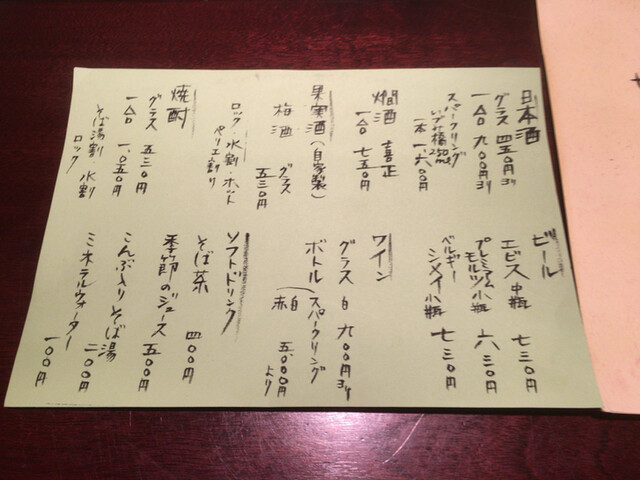 日本酒
グラス 四五〇円ヨリ
一合 九〇〇円ヨリ
スパークリング
250ml
一本 一、六〇〇円
燗酒 喜正
一合 七五〇円
果実酒（自家製）
梅酒 グラス
五三〇円
ロック・水割・ホット
ペリエ割り
焼酎
グラス 五三〇円
一合 一、〇五〇円
そば湯割・水割
ロック
ビール
エビス中瓶 七三〇円
プレミアム
モルツ小瓶 六三〇円
ベルギー
シメイ小瓶 七三〇円
ワイン
グラス 白 九〇〇円ヨリ
ボトル スパークリング
赤 白 五、〇〇〇円
より
ソフトドリンク
そば茶 四〇〇円
季節のジュース 五〇〇円
こんぶ入りそば湯
二〇〇円
ミネラルウォーター
一〇〇円